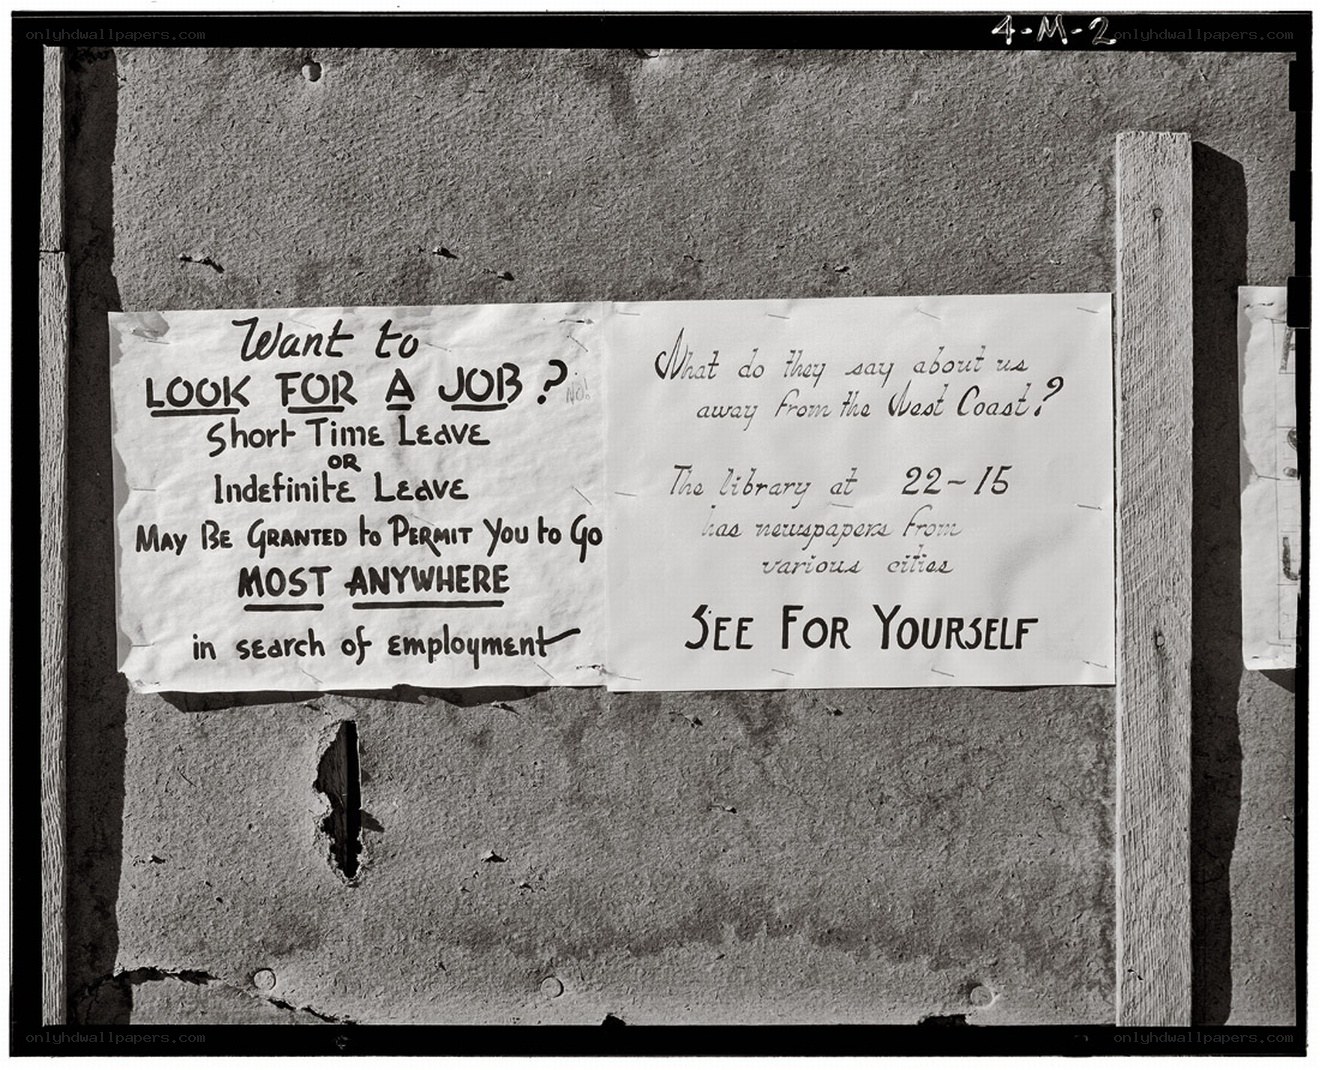 onlyhdwallpapers.com
4-M-2
onlyhdwallpapers.com
Want to
LOOK FOR A JOB?
No!
Short Time Leave
OR
Indefinite Leave
May Be Granted to Permit You to Go
MOST ANYWHERE
in search of employment
What do they say about us
away from the West Coast?
The library at 22-15
has newspapers from
various cities
SEE FOR YOURSELF
onlyhdwallpapers.com
onlyhdwallpapers.com